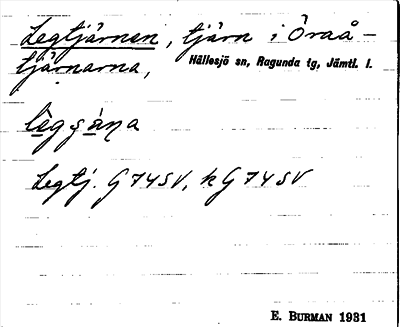 Legtjärnen, tjärn i Öraå-
tjärnarna, Hällesjö sn, Ragunda tg, Jämtl. l.
Legtj. G74SV, k G74SV
E. BURMAN 1931